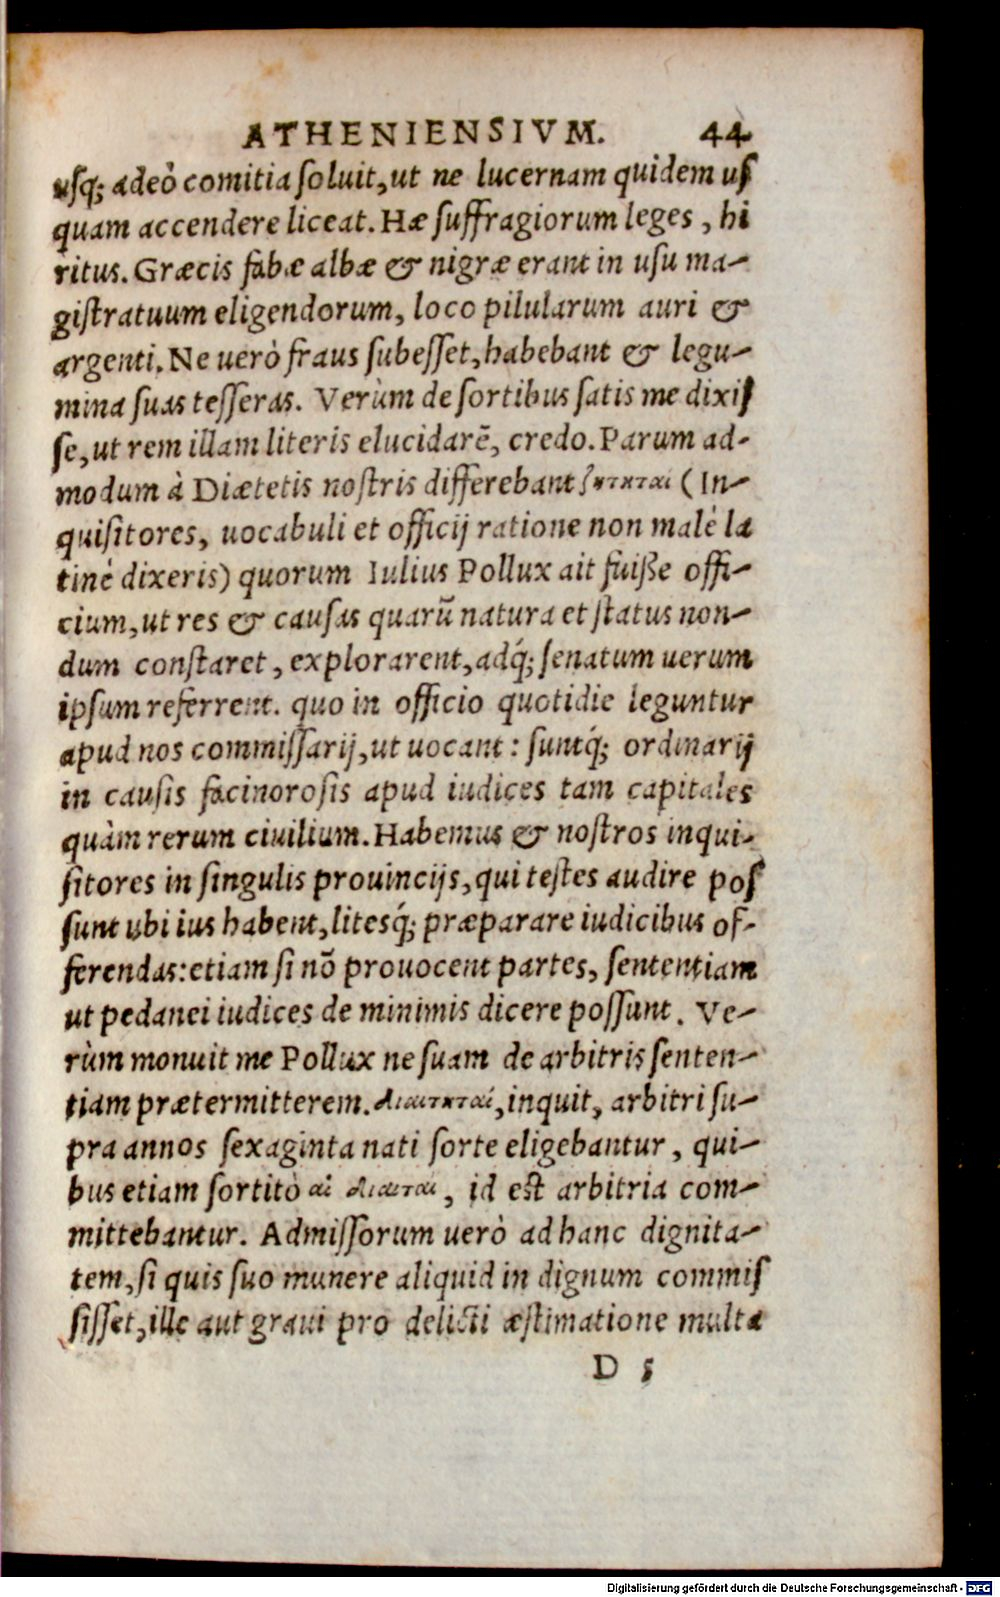 ATHENIENSIVM. 44
uſq́; adeò comitia ſoluit, ut ne lucernam quidem uſ
quam accendere liceat. Hæ ſuffragiorum leges, hi
ritus. Græcis fabæ albæ & nigræ erant in uſu ma-
giſtratuum eligendorum, loco pilularum auri &
argenti. Ne uerò fraus ſubeſſet, habebant & legu-
mina ſuas teſſeras. Verùm de ſortibus ſatis me dixiſ
ſe, ut rem illam literis elucidarē, credo. Parum ad-
modum à Diætetis noſtris differebant ζητηταὶ (In-
quiſitores, uocabuli et officij ratione non malè la
tinè dixeris) quorum Iulius Pollux ait fuiſſe offi-
cium, ut res & cauſas quarū natura et ſtatus non-
dum conſtaret, explorarent, adq́; ſenatum uerum
ipſum referrent. quo in officio quotidie leguntur
apud nos commiſſarij, ut uocant: ſuntq́; ordinarij
in cauſis facinoroſis apud iudices tam capitales
quàm rerum ciuilium. Habemus & noſtros inqui-
ſitores in ſingulis prouincijs, qui teſtes audire poſ
ſunt ubi ius habent, liteſq́; præparare iudicibus of-
ferendas: etiam ſi nō prouocent partes, ſententiam
ut pedanei iudices de minimis dicere poſſunt. Ve-
rùm monuit me Pollux ne ſuam de arbitris ſenten-
tiam prætermitterem. διαιτηταί, inquit, arbitri ſu-
pra annos ſexaginta nati ſorte eligebantur, qui-
bus etiam ſortitò αἱ δίαιται, id eſt arbitria com-
mittebantur. Admiſſorum uerò ad hanc dignita-
tem, ſi quis ſuo munere aliquid in dignum commiſ
ſiſſet, ille aut graui pro delicti æſtimatione multa
D 5
Digitalisierung gefördert durch die Deutsche Forschungsgemeinschaft - DFG